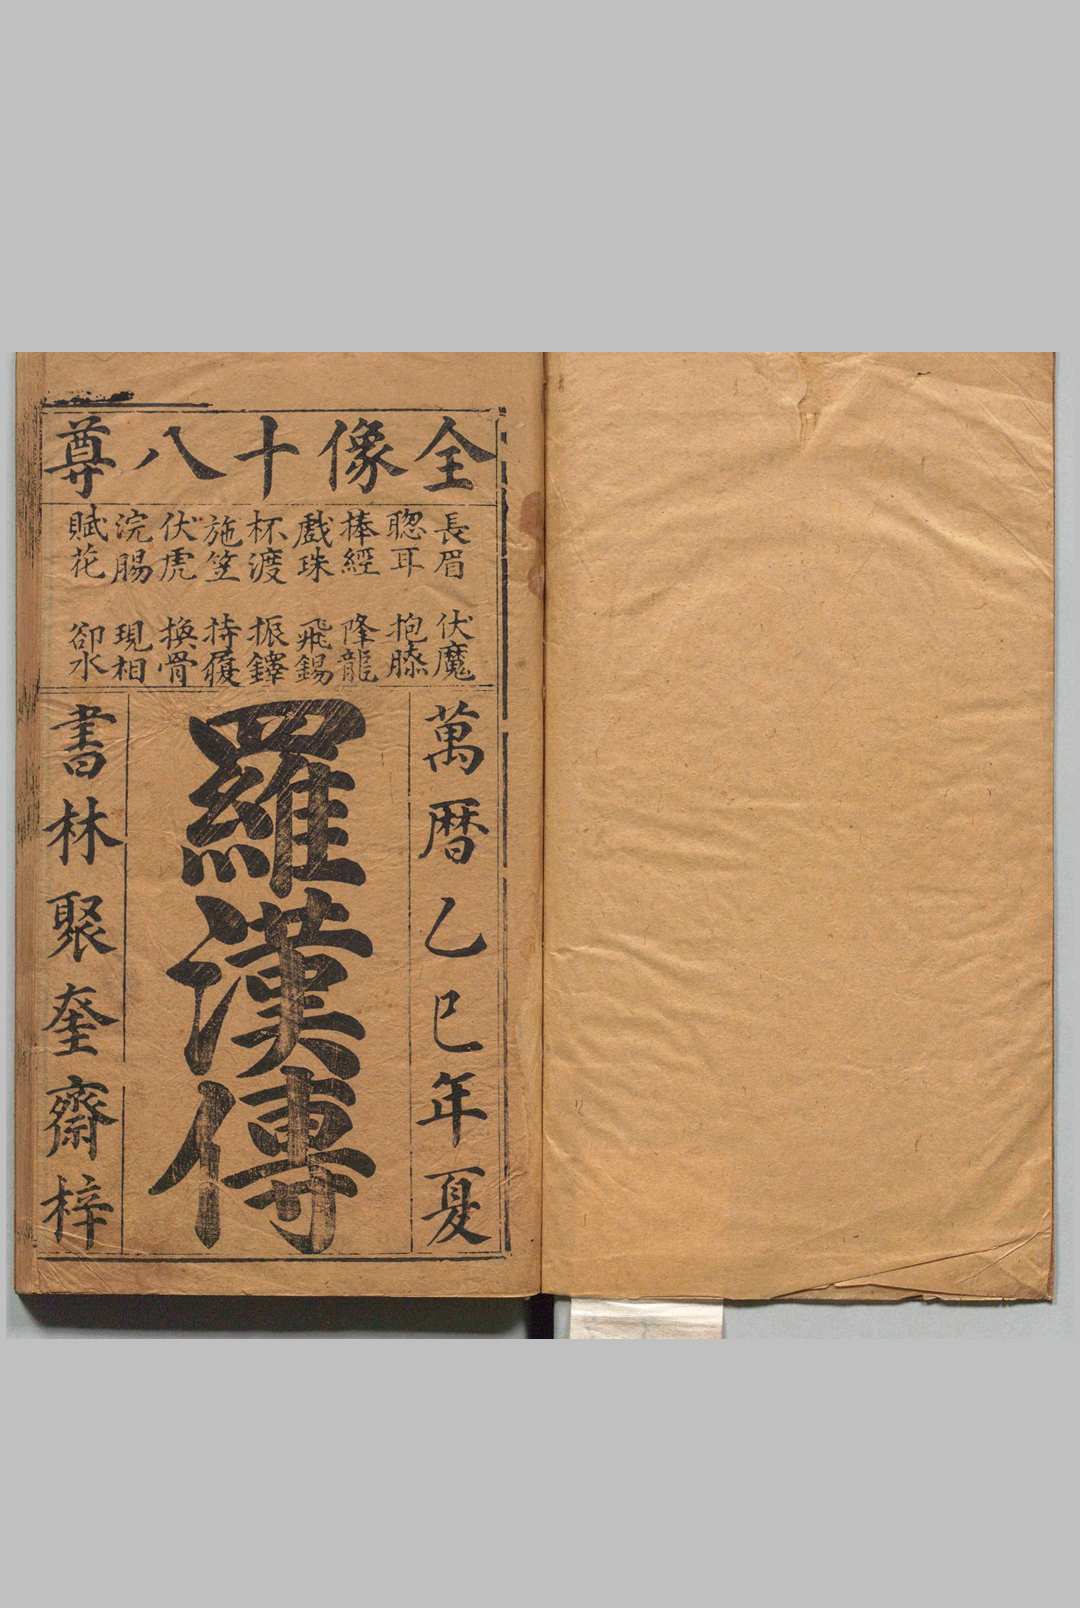 全像十八尊
長眉 伏魔
聦耳 抱膝
捧經 降龍
戲珠 飛錫
杯渡 振鐸
施笠 持履
伏虎 換骨
浣腸 現相
賦花 卻水
萬曆乙巳年夏
羅漢傳
書林聚奎齋梓